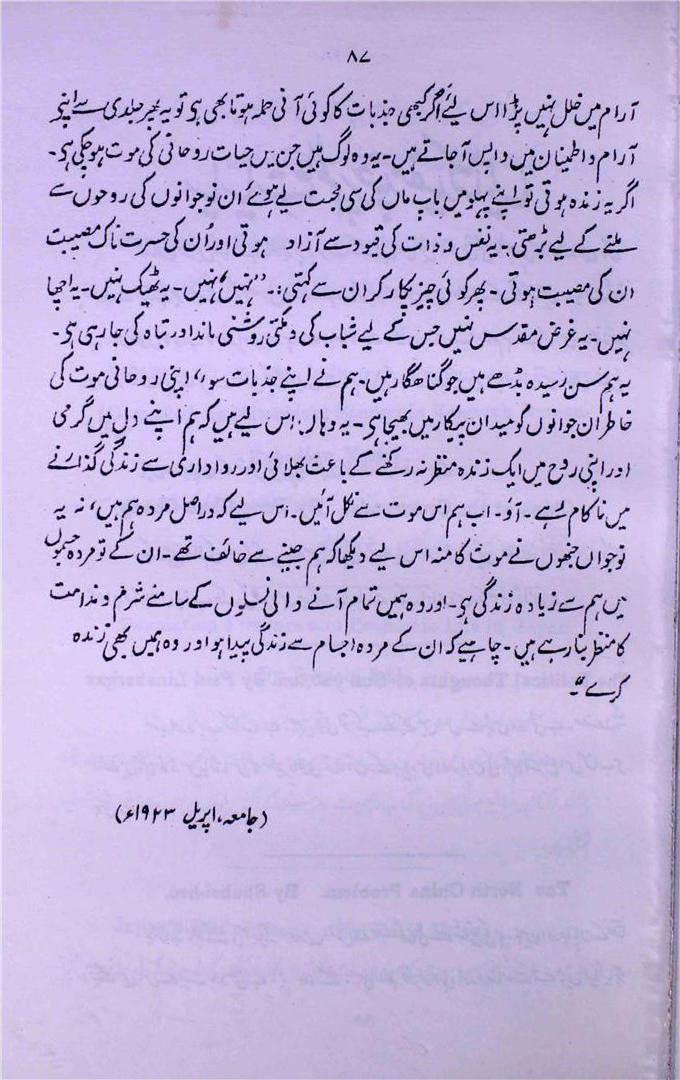 ۸۷
آرام میں خلل نہیں پڑا اس لیے اگر کبھی جذبات کا کوئی آنی حملہ ہوتا بھی ہی تو یہ پھر جلدی سے اپنی
آرام و اطمینان میں واپس آ جاتے ہیں۔ یہ وہ لوگ ہیں جن میں حیات روحانی کی موت ہو چکی ہی۔
اگر یہ زندہ ہوتی تو اپنے پہلو میں باپ ماں کی سی محبت لیے ہوئے ان نوجوانوں کی روحوں سے
ملنے کے لیے بڑھتی۔ یہ نفس و ذات کی قیود سے آزاد ہوتی اور اُن کی حسرت ناک مصیبت
ان کی مصیبت ہوتی۔ پھر کوئی چیز پکار کر ان سے کہتی:۔ "نہیں، نہیں۔ یہ ٹھیک نہیں۔ یہ اچھا
نہیں۔ یہ غرض مقدس نہیں جس کے لیے شباب کی دمکتی روشنی ماند اور تباہ کی جا رہی ہی۔
یہ ہم سن رسیدہ بڈھے ہیں جو گناہگار ہیں۔ ہم نے اپنے جذبات سوء، اپنی روحانی موت کی
خاطر ان جوانوں کو میدان پیکار میں بھیجا ہی۔ یہ وہاں اس لیے ہیں کہ ہم اپنے دل میں گرمی
اور اپنی روح میں ایک زندہ منظر نہ رکھنے کے باعث بھلائی اور رواداری سے زندگی گذارنے
میں ناکام رہے۔ آؤ۔ اب ہم اس موت سے نکل آئیں۔ اس لیے کہ دراصل مردہ ہم ہیں، نہ یہ
نوجواں جنھوں نے موت کا منہ اس لیے دیکھا کہ ہم جینے سے خائف تھے۔ ان کے تو مردہ جسموں
میں ہم سے زیادہ زندگی ہی۔ اور وہ ہمیں تمام آنے والی نسلوں کے سامنے شرم و ندامت
کا منظر بنا رہے ہیں۔ چاہیے کہ ان کے مردہ اجسام سے زندگی پیدا ہو اور وہ ہمیں بھی زندہ
کرے"۔
(جامعہ، اپریل ۱۹۲۳ء)